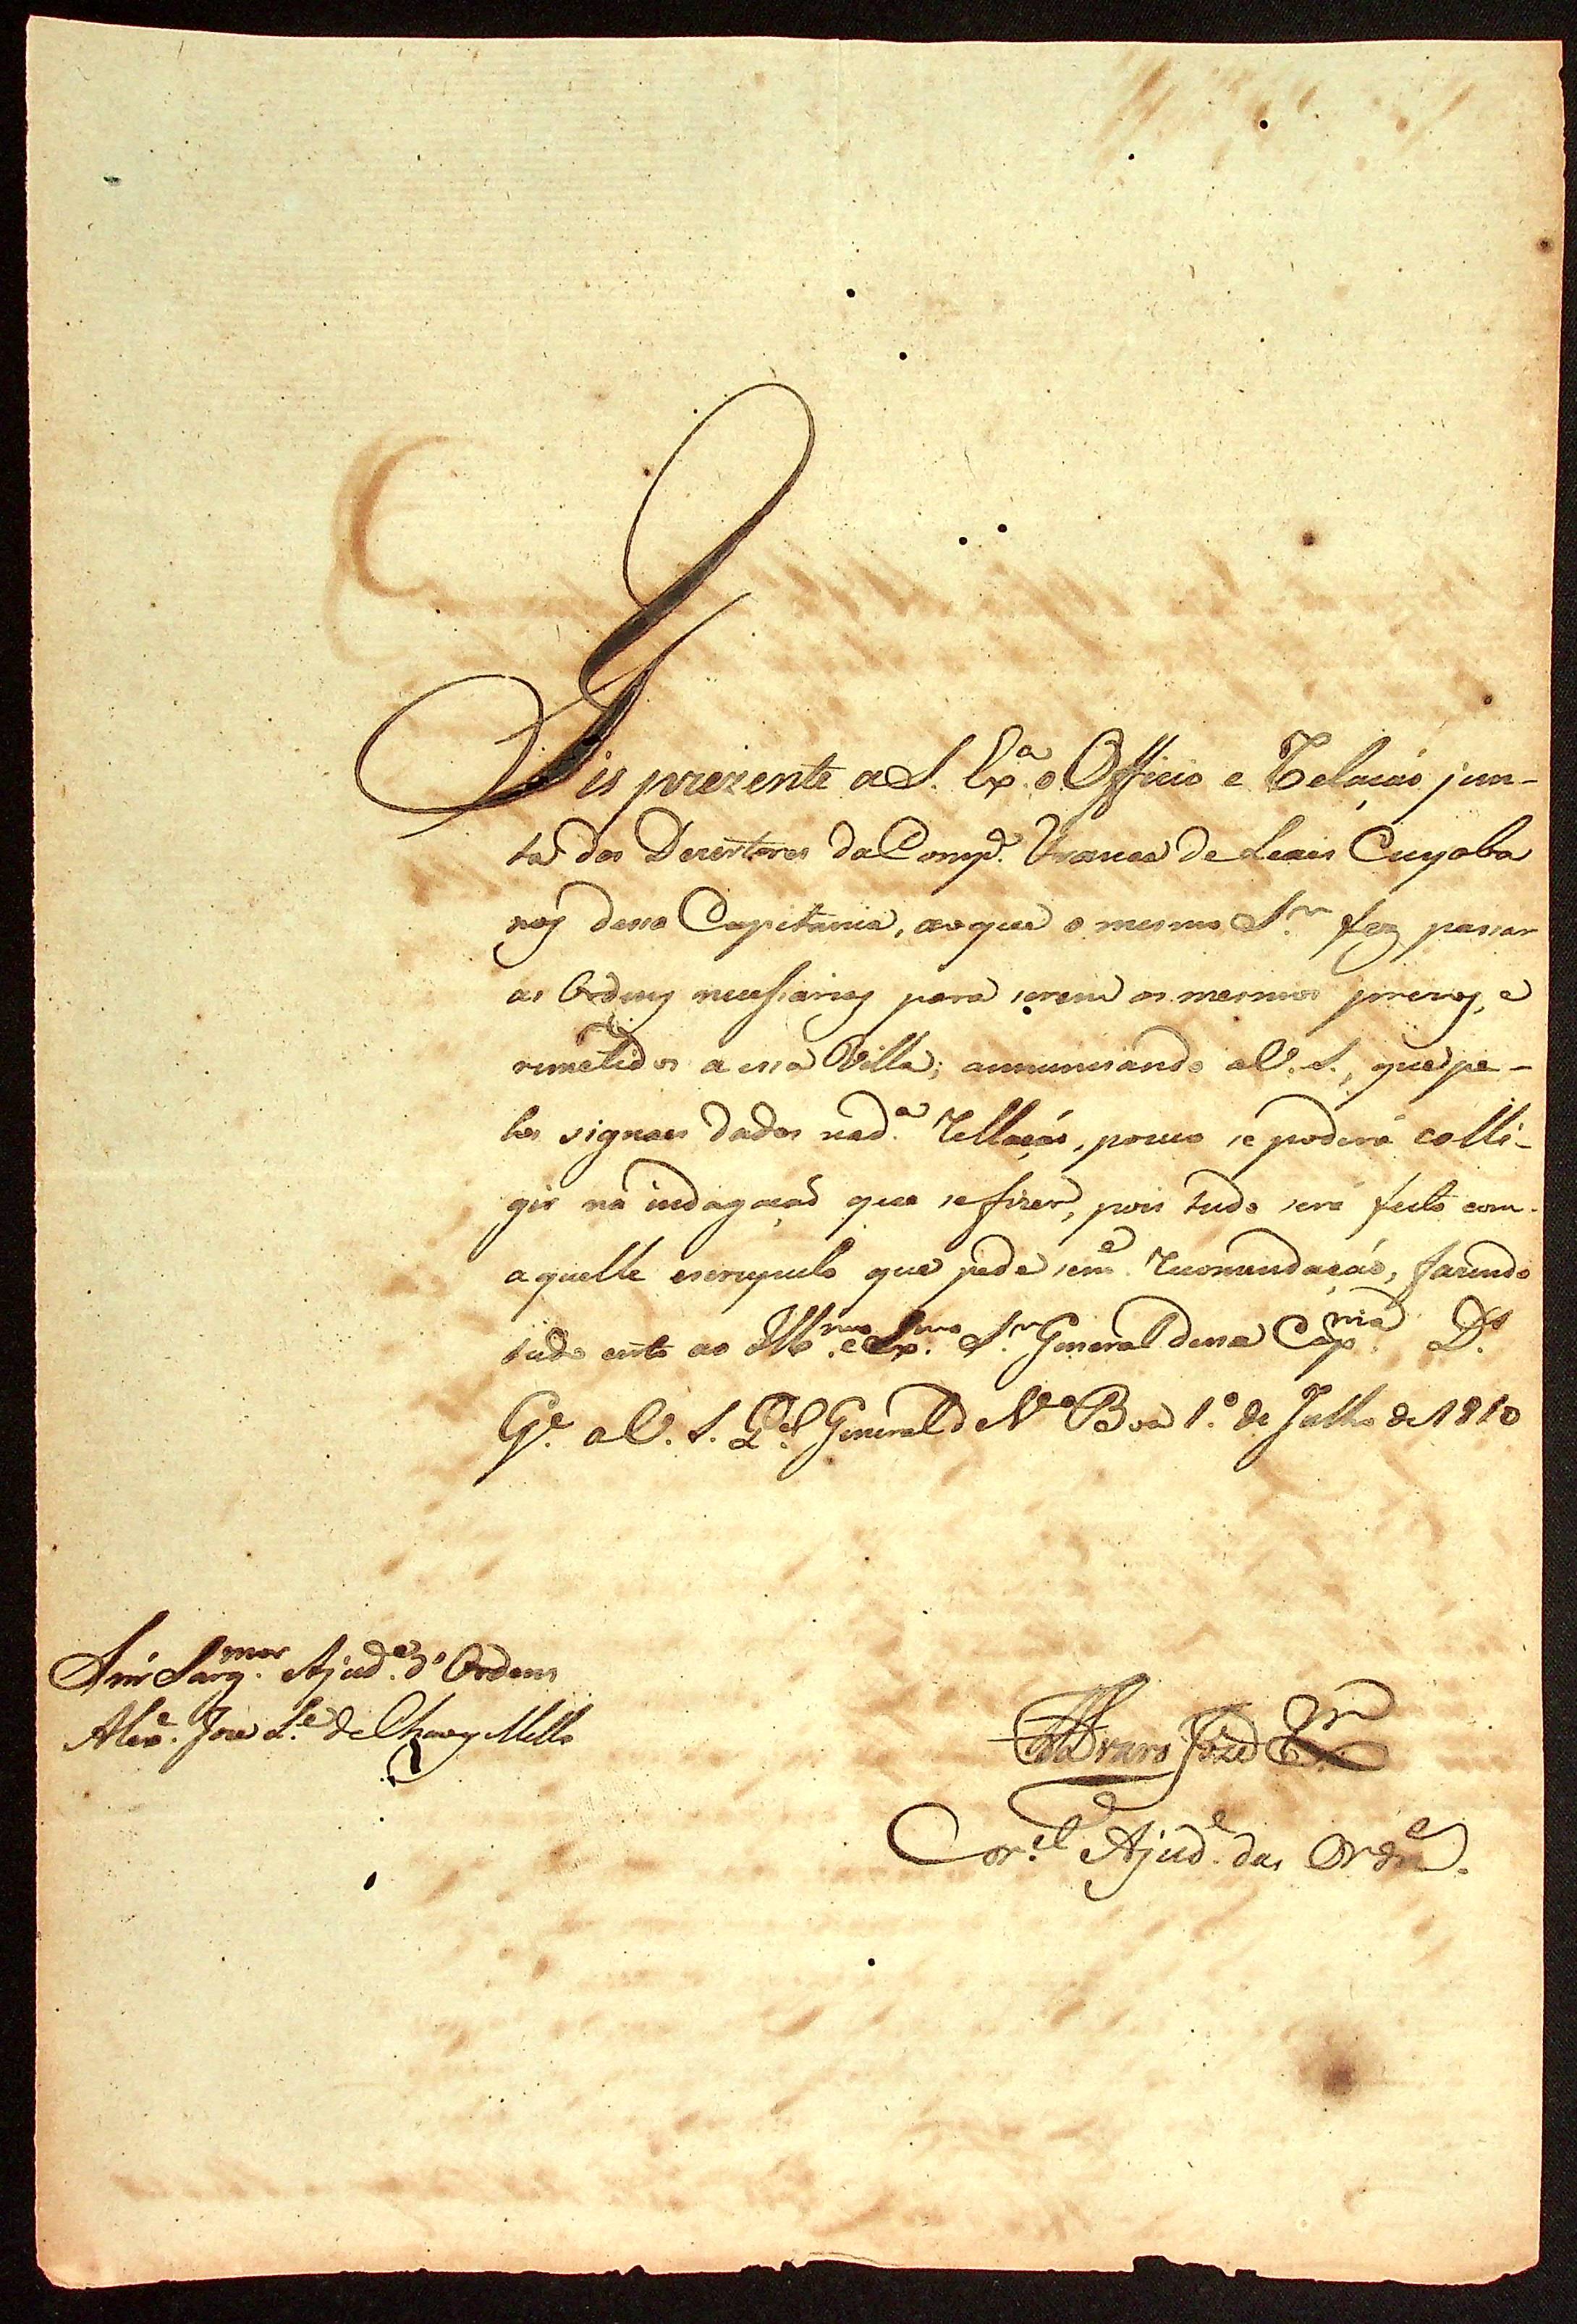 Fis prezente a S. Ex.ª o Officio e Relação jun-
ta dos Dezertores da Comp.ª Franca de Leais Cuyaba
nos dessa Capitania, ao que o mesmo S.r fez passar
as Ordens necessarias para serem os mesmos prezos, e
remetidos a essa Villa; annunciando a V. S., que pe-
los signaes dados na d.ª Rellação, pouco se poderá colli-
gir na indagação que se fizer, pois tudo será feito com
aquelle escrupulo que pede sem.e Recomendação, fazendo
tudo certo ao Ill.mo e Ex.mo S.r General dessa Cap.nia D.s
G.e a V. S. Q.el General de V.a Boa 1.º de Julho de 1810
Snr Sarg.mor Ajud.e d'Ordens
Alex.e Joze L.e de Chaves Mello
Alvaro Jozé X.er
Cor.el Ajud.e das Ord.e